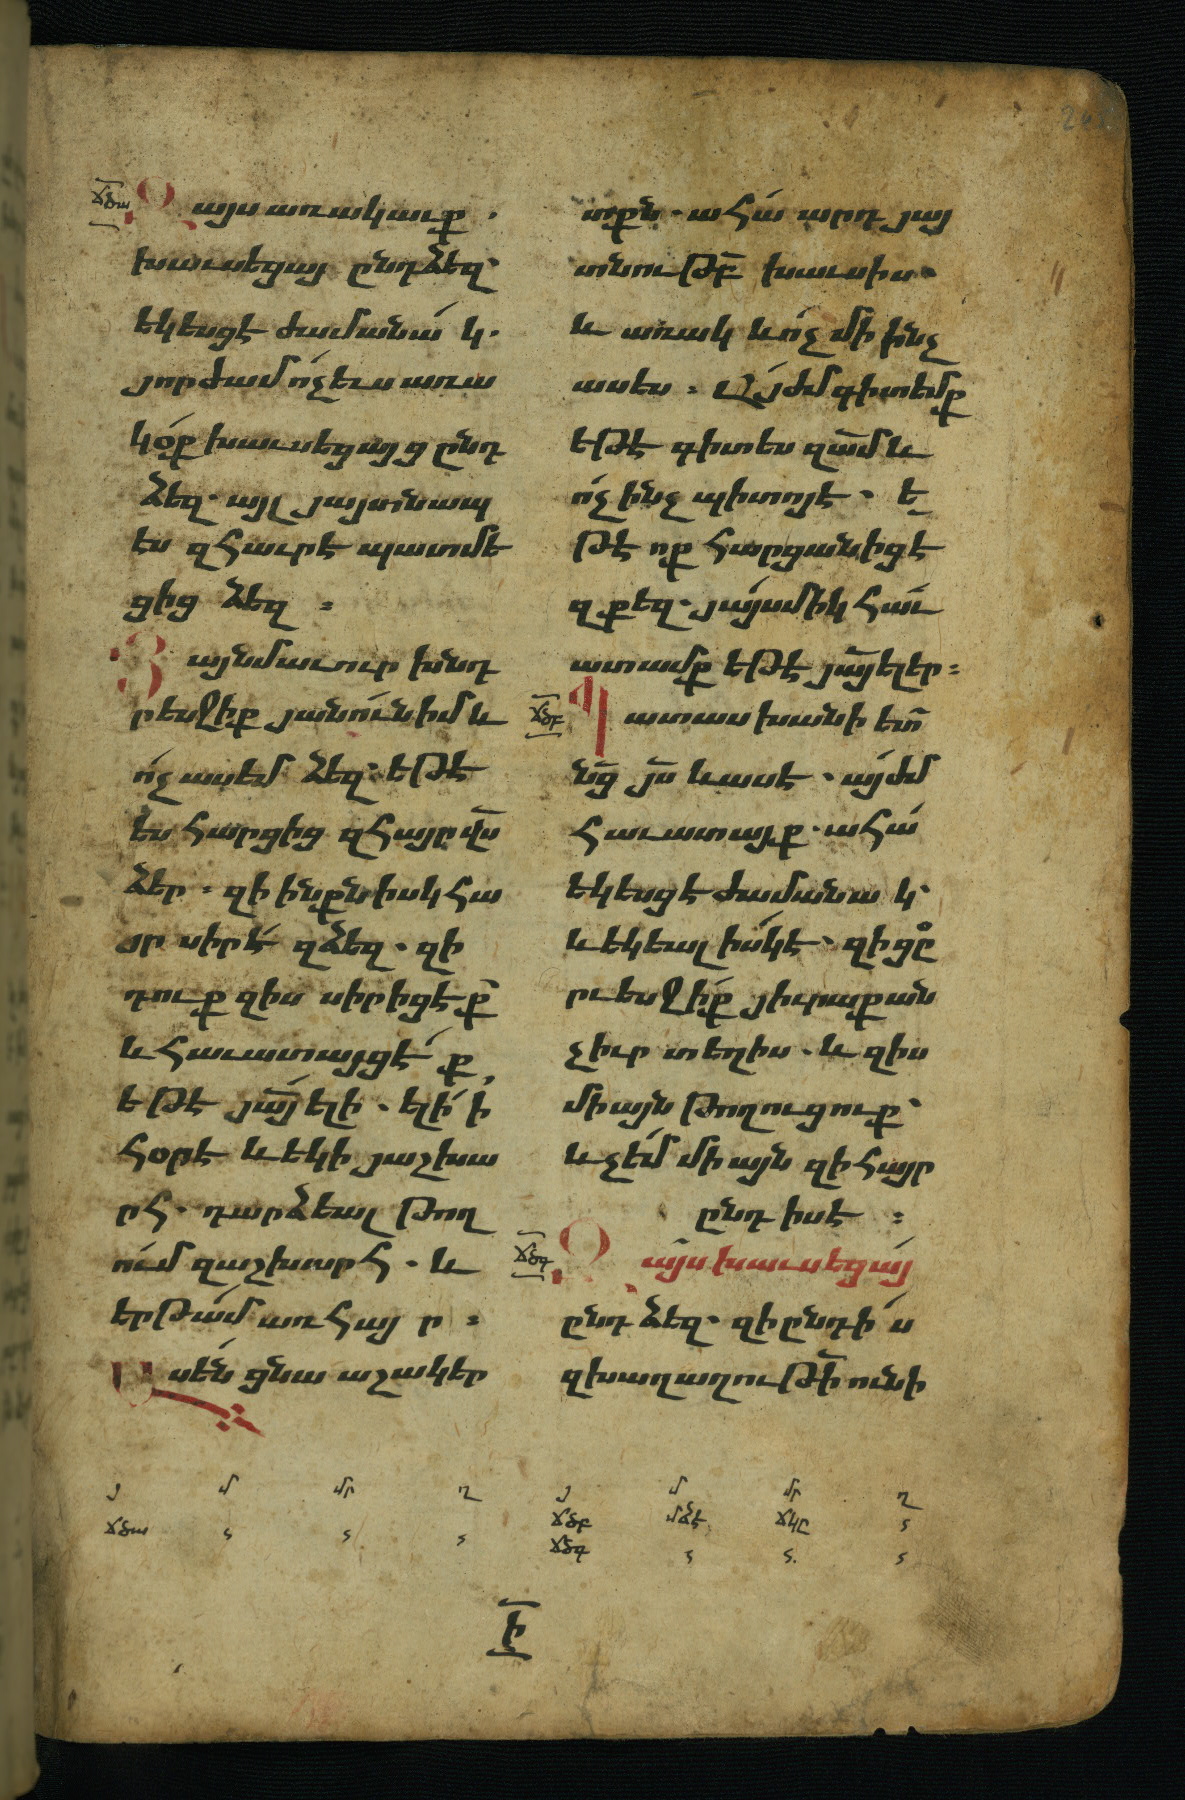 ճծա
Զայս առակաւք ·
խաւսեցայ ընդձեզ·
եկեսցէ ժամանա կ·
յորժամ ոչ ևս առա
կօք խաւսեցայց ընդ
ձեզ· այլ յայտնապ
ես զհաւրէ պատմե
ցից ձեզ ։
Յայնմաւուր խնդ
րեսջիք յանուն իմ և
ոչ ասեմ ձեզ· եԹէ
ես հարցից զհայր վս
ձեր ։ զի ինքն իսկ հա
յր սիրէ զձեզ · զի
դուք զիս սիրիցէք
և հաւատայցէ ք
եԹէ յայ ելի · ելի ի
հօրէ և եկի յաշխա
րհ · դարձեալ Թող
ում զաշխարհ · և
երԹամ առ հայ ր ։
Ասեն ցնա աշակեր
տքն · ահա արդ յայ
տնուԹբ խաւսիս·
և առակ և ոչ մի ինչ
ասես ։ Այժմ գիտեմք
եԹէ գիտես զամ և
ոչ ինչ պիտոյէ · ե
Թէ ոք հարցանիցէ
զքեզ· յայսմիկ հաւ
ատամք եԹէ յայ ելեր ։
ճծբ
Պատասխանի ետ
նց յս և ասէ · այժմ
հաւատայք · ահա
եկեսցէ ժամանա կ·
և եկեալ իսկէ · զի ցը
րւեսջիք յիւրաքան
չիւր տեղիս · և զիս
միայն Թողուցուք·
և չեմ միայն զի հայր
ընդ իսէ ։
ճծգ
Զայս խաւսեցայ
ընդ ձեզ· զի ընդի ս
զխաղաղուԹի ունի
յ մ մր ղ
ճծա
յ մ մր ղ
ճծբ մձէ ճկը
ճծգ
Ի